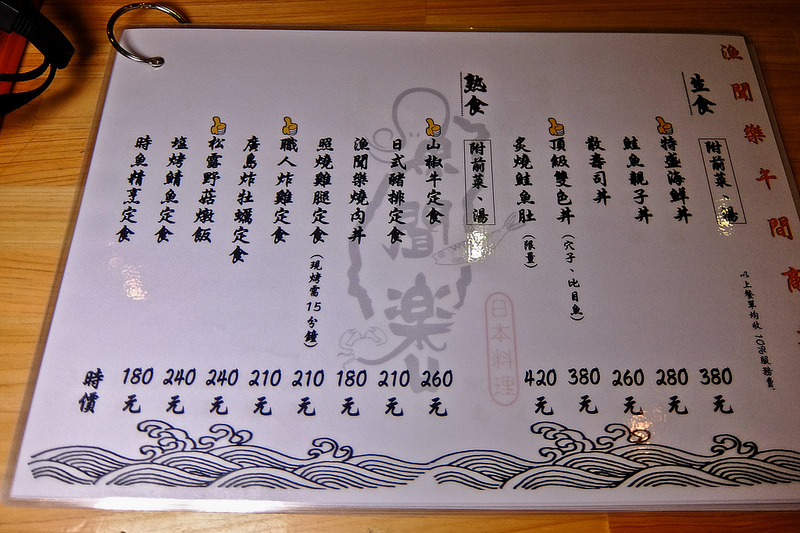 漁聞樂午間商
以上餐單均收10%服務費
生食
附前菜、湯
特盛海鮮丼 380元
鮭魚親子丼 280元
散壽司丼 260元
頂級雙色丼(穴子、比目魚) 380元
炙燒鮭魚肚(限量) 420元
熟食
附前菜、湯
山椒牛定食 260元
日式豬排定食 210元
漁聞樂燒肉丼 180元
照燒雞腿定食(現烤需15分鐘) 210元
職人炸雞定食 210元
廣島炸牡蠣定食 240元
松露野菇燉飯 240元
塩烤鯖魚定食 180元
時魚精烹定食 時價
聞楽
日本料理